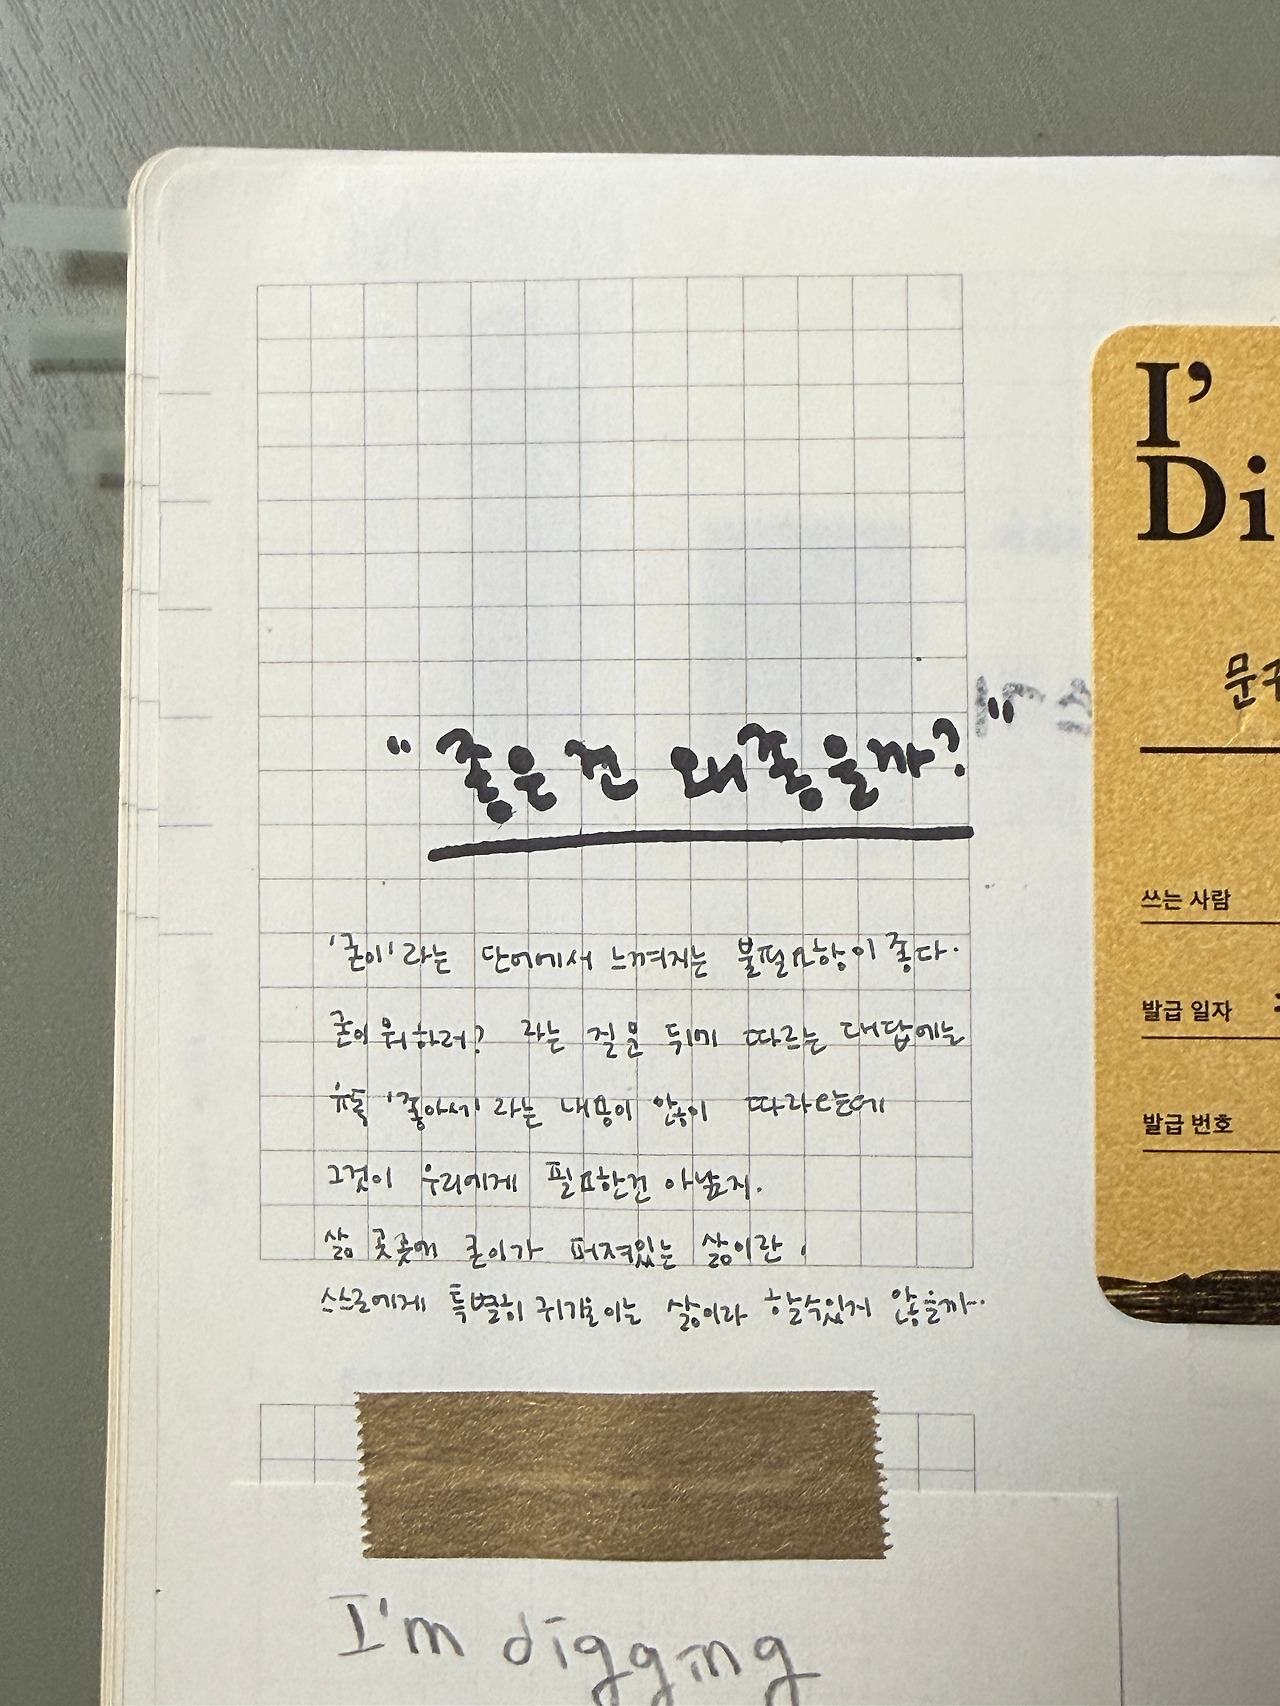 "좋은건 왜좋을까?"
'굳이'라는 단어에서 느껴지는 불필요함이 좋다.
굳이 뭐하러? 라는 질문 뒤에 따르는 대답에는
유독 '좋아서' 라는 내용이 많이 따라오는데
그것이 우리에게 필요한건 아닐는지.
삶 곳곳에 굳이가 퍼져있는 삶이란,
스스로에게 특별히 귀기울이는 삶이라 할수있지 않을까.
I'm digging
I'
Di
문구
쓰는 사람
발급 일자
발급 번호